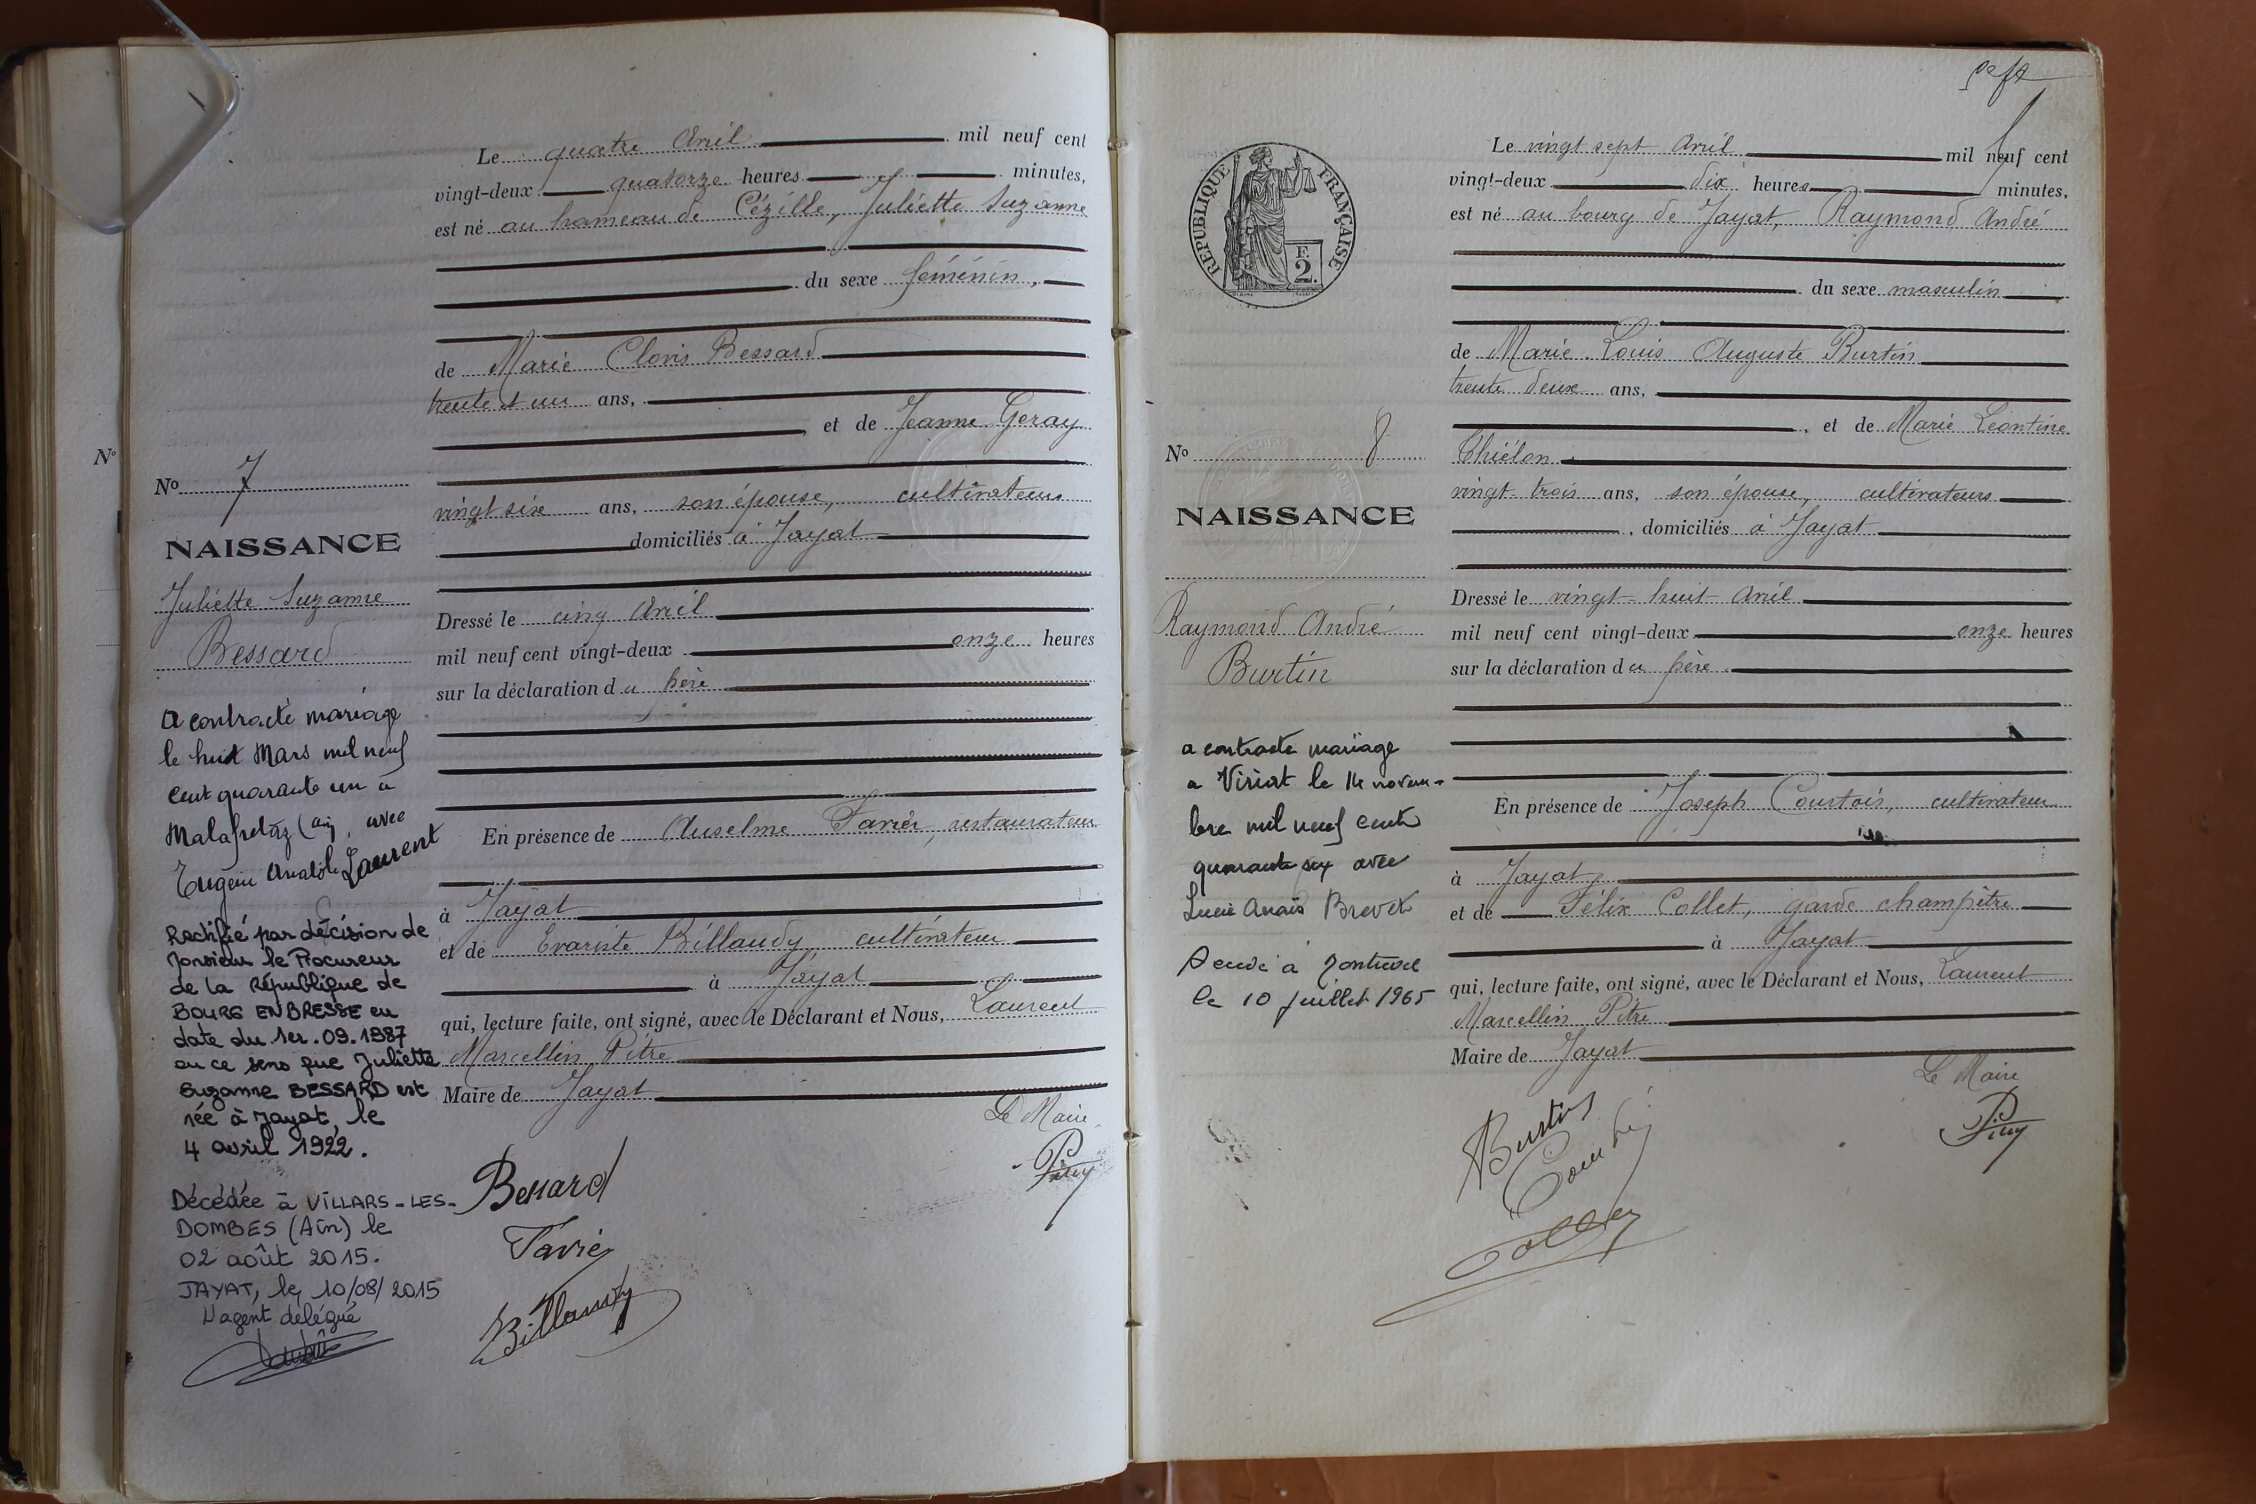 Le quatre Avril mil neuf cent
vingt-deux quatorze heures minutes,
est né au hameau de Cézille, Juliette Suzanne
du sexe féminin,
de Marie Clovis Bessard
trente et un ans,
et de Jeanne Geray
vingt six ans, son épouse, cultivateurs
domiciliés à Jayat
Dressé le cinq Avril
mil neuf cent vingt-deux onze heures
sur la déclaration du père
En présence de Anselme Favier, restaurateur
à Jayat
et de Evariste Billaudy, cultivateur
à Jayat
qui, lecture faite, ont signé, avec le Déclarant et Nous, Laurent
Marcellin Pitre
Maire de Jayat
Le Maire
Bessard
Favier
Billaudy
No
No 7
NAISSANCE
Juliette Suzanne
Bessard
A contracté mariage
le huit Mars mil neuf
cent quarante un à
Malafretaz (Ain), avec
Eugène Anatole Laurent
Rectifié par décision de
Monsieur le Procureur
de la République de
BOURG EN BRESSE en
date du 1er.09.1987
en ce sens que Juliette
Suzanne BESSARD est
née à Jayat, le
4 avril 1922.
Décédée à VILLARS-LES-
DOMBES (Ain) le
02 août 2015.
JAYAT, le 10/08/2015
L'agent délégué
sept
RÉPUBLIQUE FRANÇAISE
F. 2.
Le vingt sept Avril mil neuf cent
vingt-deux dix heures minutes,
est né au bourg de Jayat, Raymond André
du sexe masculin
de Marie Louis Auguste Burtin
trente deux ans,
, et de Marie Léontine
Thiélon
vingt-trois ans, son épouse, cultivateurs
, domiciliés à Jayat
Dressé le vingt-huit Avril
mil neuf cent vingt-deux onze heures
sur la déclaration du père
En présence de Joseph Courtois, cultivateur
à Jayat,
et de Félix Collet, garde champêtre
à Jayat
qui, lecture faite, ont signé, avec le Déclarant et Nous, Laurent
Marcellin Pitre
Maire de Jayat
Le Maire
Burtin
No 8
NAISSANCE
Raymond André
Burtin
a contracté mariage
a Viriat le 14 novem-
bre mil neuf cent
quarante six avec
Lucie Anaïs Brevet
Décédé à Montrevel
le 10 juillet 1965